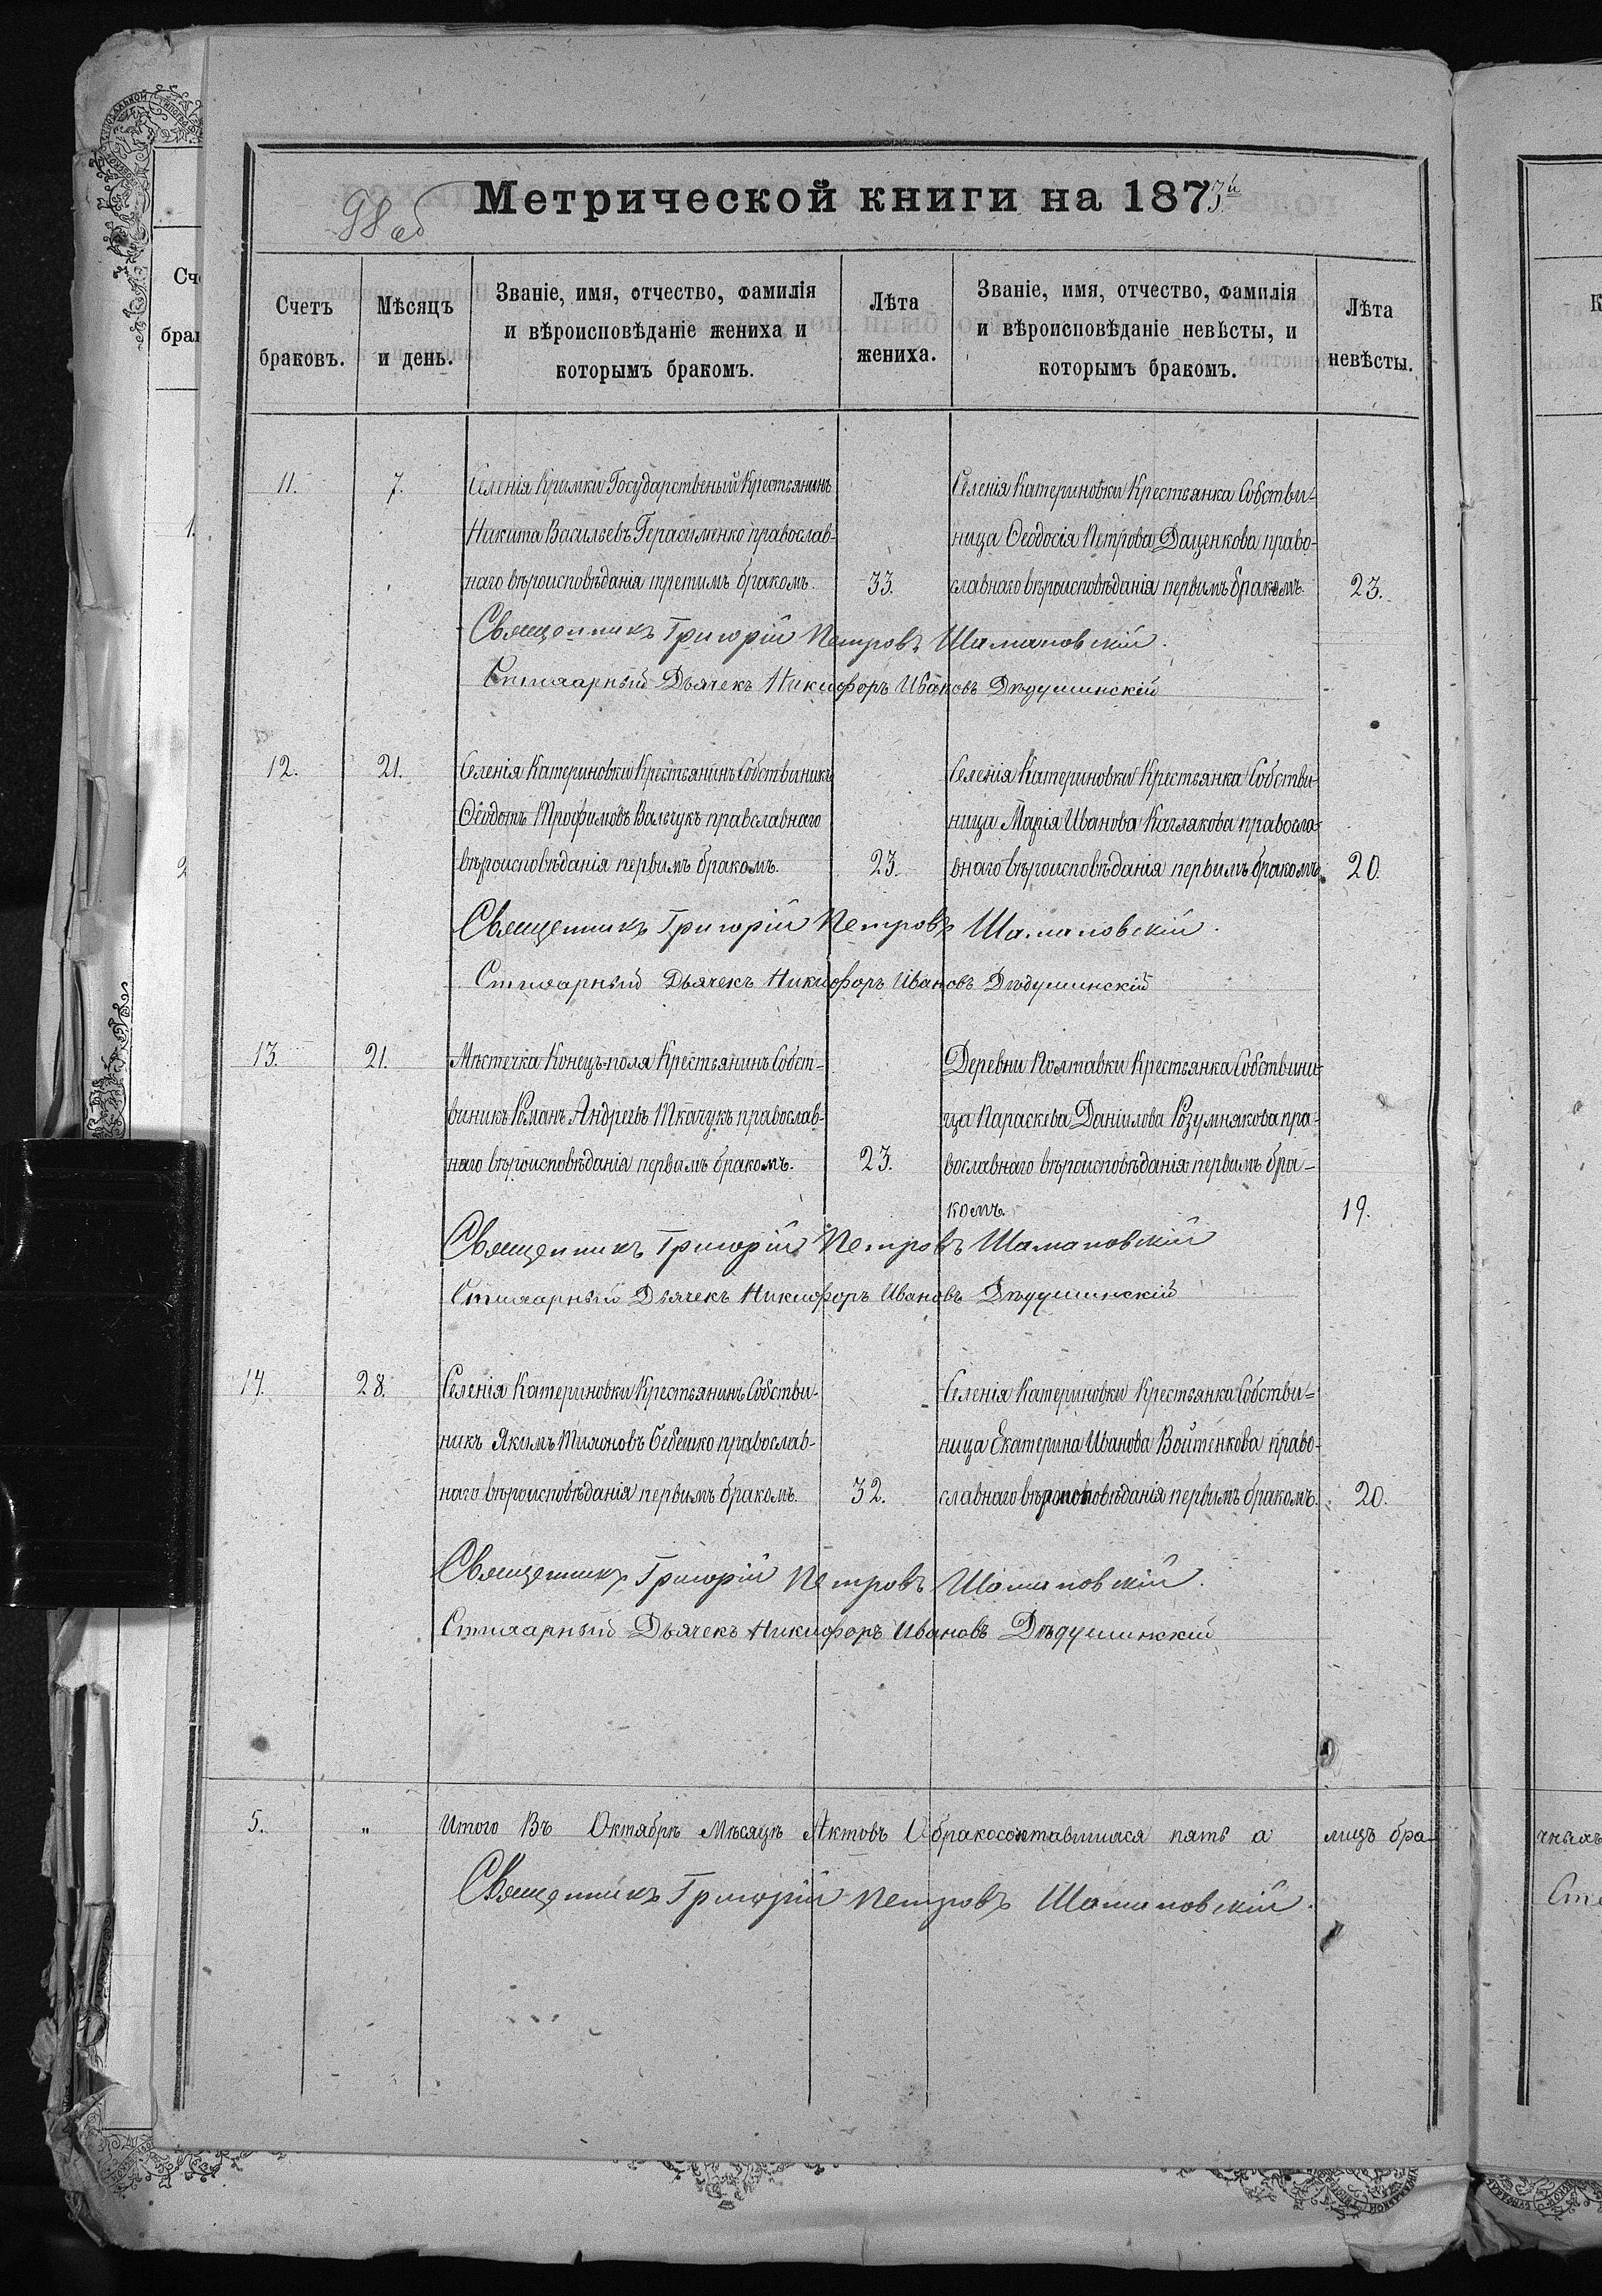 Метрической книги на 1873й
98 об
Счетъ браковъ.
Мѣсяцъ и день.
Званіе, имя, отчество, фамилія и вѣроисповѣданіе жениха и которымъ бракомъ.
Лѣта жениха.
Званіе, имя, отчество, фамилія и вѣроисповѣданіе невѣсты, и которымъ бракомъ.
Лѣта невѣсты.
11. 7. Селенія Кримки Государственый Крестьянинъ
Никита Васильевъ Герасименко православ-
наго вѣроисповѣданія третимъ бракомъ. 33.
Селенія Катериновки Крестьянка Собстви-
ница Ѳеодосія Петрова Даценкова право-
славнаго вѣроисповѣданія первимъ бракомъ. 23.
Священникъ Григорій Петровъ Шамановскій.
Стихарный Дьячекъ Никифоръ Ивановъ Дѣдушинскій
12. 21. Селенія Катериновки Крестьянинъ Собствиникъ
Ѳеодотъ Трофимовъ Вальчукъ правславнаго
вѣроисповѣданія первимъ бракомъ. 23.
Селенія Катериновки Крестьянка Собстви-
ница Марія Иванова Каглякова правосла-
внаго вѣроисповѣданія первимъ бракомъ. 20.
Священникъ Григорій Петровъ Шамановскій.
Стихарный Дьячекъ Никифоръ Ивановъ Дѣдушинскій
13. 21. Мѣстечка Конецъ-поля Крестьянинъ Собст-
виникъ Романъ Андреевъ Ткачукъ православ-
наго вѣроисповѣданія первимъ бракомъ. 23.
Деревни Полтавки Крестьянка Собствини-
ца Параскева Даніилова Розумнякова пра-
вославнаго вѣроисповѣданія первимъ бра-
комъ. 19.
Священникъ Григорій Петровъ Шамановскій
Стихарный Дьячекъ Никифоръ Ивановъ Дѣдушинскій
14. 28. Селенія Катериновки Крестьянинъ Собстви-
никъ Якимъ Тихоновъ Бебешко православ-
наго вѣроисповѣданія первимъ бракомъ. 32.
Селенія Катериновки Крестьянка Собстви-
ница Екатерина Иванова Войтенкова право-
славнаго вѣроисповѣданія первимъ бракомъ. 20.
Священникъ Григорій Петровъ Шамановскій.
Стихарный Дьячекъ Никифоръ Ивановъ Дѣдушинскій
5. " Итого Въ Октябрѣ Мѣсяцѣ Актовъ О бракосочетавшихся пять а лицъ бра-
Священникъ Григорій Петровъ Шамановскій.